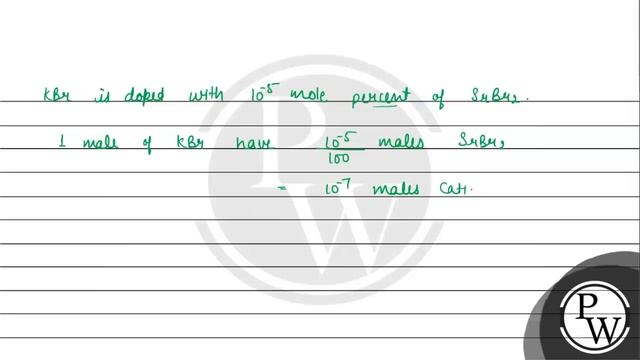 KBr is doped with 10⁻⁵ mole percent of SrBr₂.
1 mole of KBr have 10⁻⁵/100 moles SrBr₂
= 10⁻⁷ moles Cat.
P
W
P
W